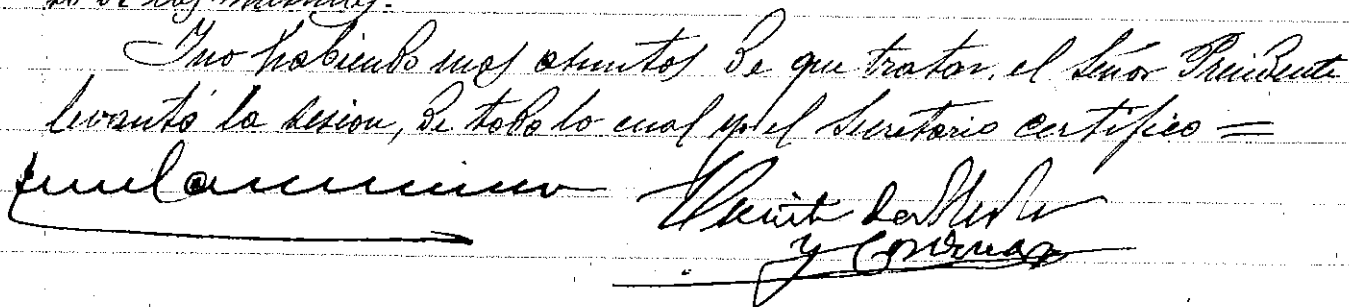 de los mismos.
Y no habiendo mas asuntos de que tratar, el Señor Presidente
levantó la sesion, de todo lo cual yo el Secretario certifico =